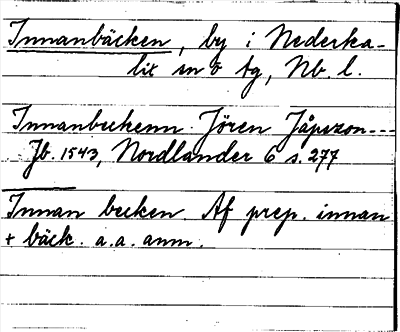 Innanbäcken, by i Nederka-
lix sn o tg, Nb. l.
Innanbeckenn. Jören Jåpszon---
Jb. 1543, Nordlander 6 s. 277
Innan becken. Af prep. innan
+ bäck. a.a. anm.